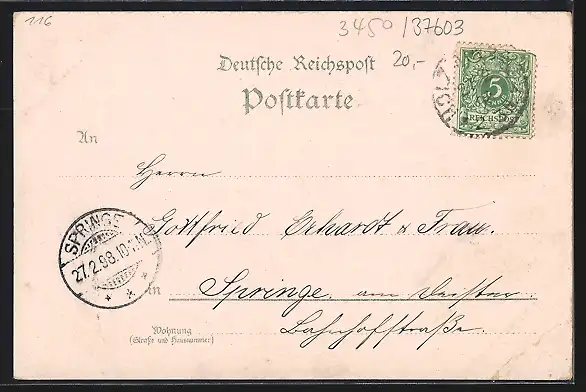 116
3450/37603
20,-
Deutsche Reichspost
Postkarte
5
PFENNIG
REICHSPOST
An
Herrn
Gottfried Erhardt & Frau.
SPRINGE
27.2.98.10-11.V.
in
Springe am Deister.
Bahnhofstraße.
Wohnung
(Straße und Hausnummer)